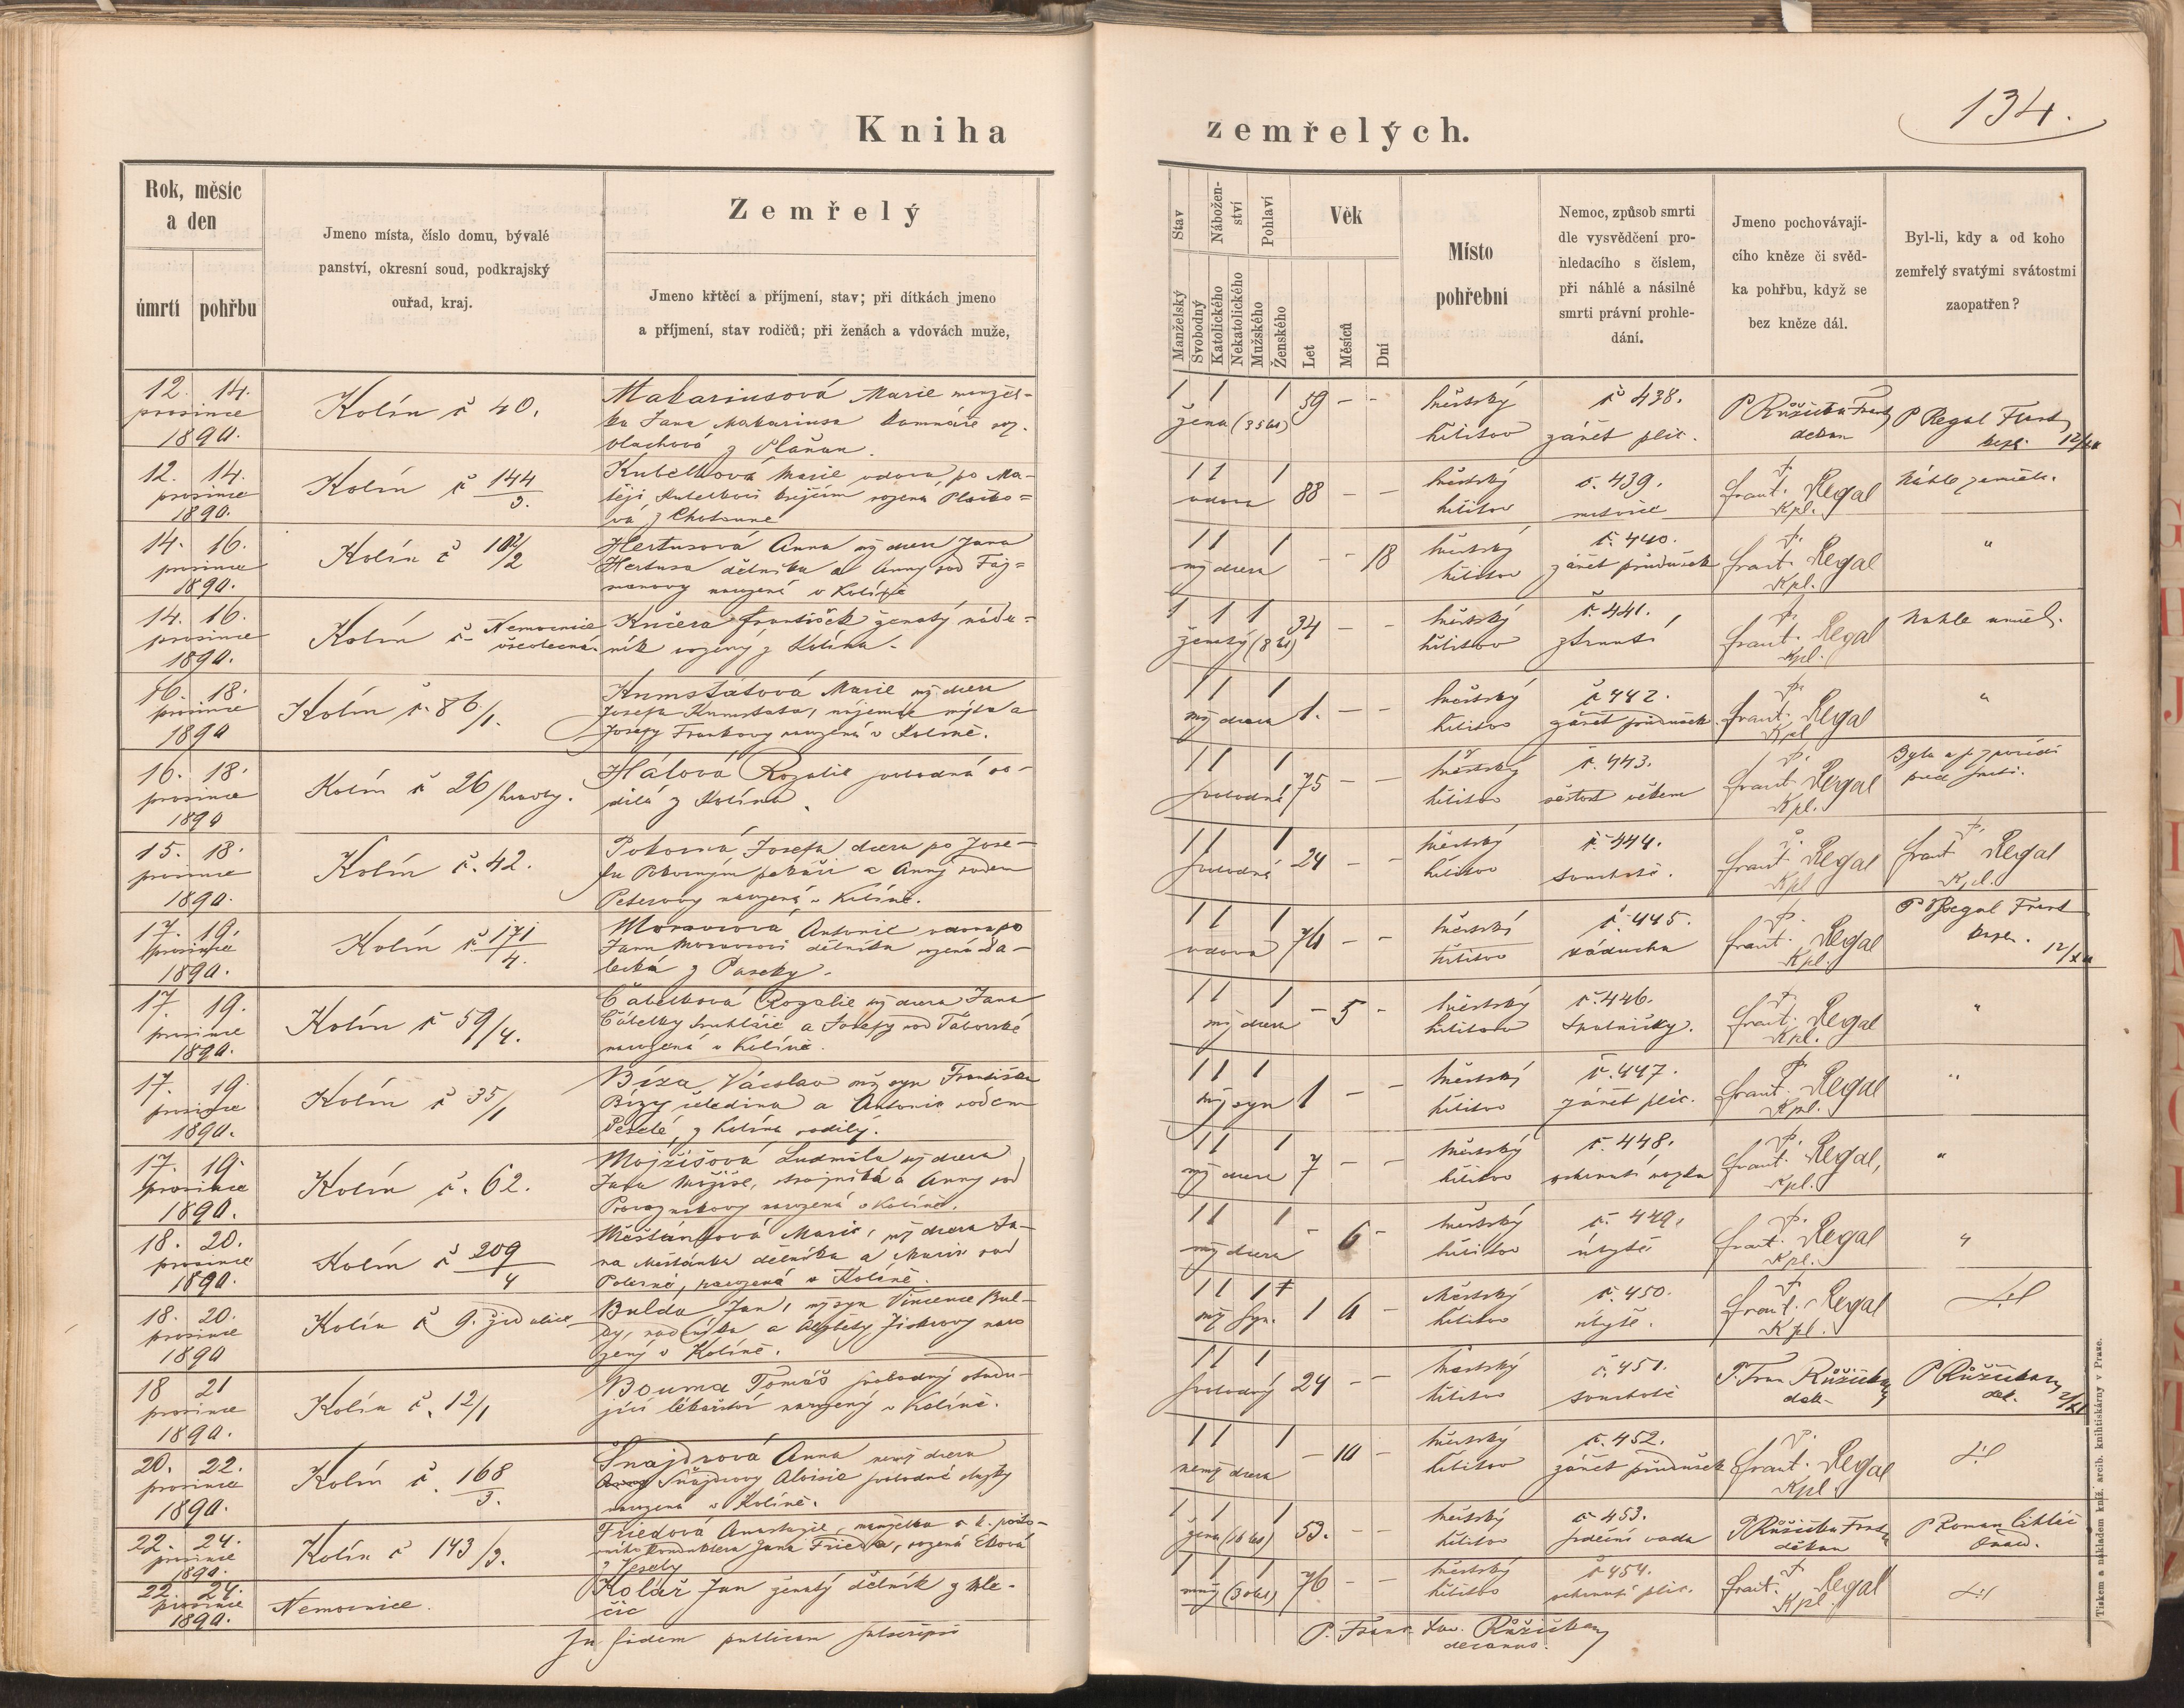 134.
Kniha zemřelých.
Rok, měsíc
a den
úmrtí
pohřbu
Jmeno místa, číslo domu, bývalé
panství, okresní soud, podkrajský
ouřad, kraj.
Zemřelý
Jmeno křtěcí a příjmení, stav; při dítkách jmeno
a příjmení, stav rodičů; při ženách a vdovách muže,
Stav
Manželský
Svobodný
Nábožen-
ství
Katolického
Nekatolického
Pohlaví
Mužského
Ženského
Věk
Let
Měsíců
Dní
Místo
pohřební
Nemoc, způsob smrti
dle vysvědčení pro-
hledacího s číslem,
při náhlé a násilné
smrti právní prohle-
dání.
Jmeno pochovávají-
cího kněze či svěd-
ka pohřbu, když se
bez kněze dál.
Byl-li, kdy a od koho
zemřelý svatými svátostmi
zaopatřen?
12. 14.
prosince
1890.
Kolín č 40.
Makariusová Marie manžel-
ka Jana Makariusa kamnáře roz.
Vlachová z Plaňan.
1 1 1 59 - -
žena (35 let)
městský
hřbitov
č 438.
zánět plic.
P Růžička Frant
děkan
P Regal Frant
kapl. 12/XII
12. 14.
prosince
1890.
Kolín č 144/3.
Kubelková Marie vdova po Ma-
těji Kubelkovi krejčím rozená
vá z Chotouně
1 1 1 88 - -
vdova
městský
hřbitov
č. 439.
mrtvice
P.
Frant. Regal
Kpl.
Náhle zemřela.
14. 16.
prosince
1890.
Kolín č 102/2
Hertusová Anna mž dcera Jana
Hertusa dělníka a Anny rod Faj-
manovy narozená v Kolíně
1 1 1 - - 18
mž dcera
městský
hřbitov
č. 440.
zánět průdušek
P.
Frant. Regal
Kpl.
"
14. 16.
prosince
1890.
Kolín č. Nemocnice
všeobecná.
Kučera František ženatý
ník rozený z Kolína.
1 1 1 34 - -
ženatý (8 let)
městský
hřbitov
č. 441.
P.
Frant. Regal
Kpl.
Náhle umřel.
16. 18.
prosince
1890
Kolín č. 86/1.
Kumstátová Marie mž dcera
Josefa Kumstata, nájemce mýta a
Josefy Frankovy narozená v Kolíně.
1 1 1 1. - -
mž dcera
městský
hřbitov
č 442.
zánět průdušek.
P.
Frant. Regal
Kpl
"
16. 18.
prosince
1890
Kolín č 26/
Hálová Rozalie svobodná ro-
dilá z Kolína.
1 1 1 75 - -
svobodná
městský
hřbitov
č. 443.
sešlost věkem
P.
Frant. Regal
Kpl.
Byla u sv zpovědi
před smrtí.
15. 18.
prosince
1890.
Kolín č. 42.
Pokorná Josefa dcera po Jose-
fu Pokorným pekaři a Anny rodem
Petersovy narozená v Kolíně.
1 1 1 24 - -
svobodná
městský
hřbitov
č. 444.
souchotě.
P.
Frant Regal
Kpl
P.
Frant Regal
Kpl.
17. 19.
prosince
1890.
Kolín č. 171/4.
Moravcová Antonie vdova po
Janu Moravcovi dělníku rozená Sa-
lecká z Paseky.
1 1 1 76 - -
vdova
městský
hřbitov
č. 445.
záducha
P.
Frant. Regal
Kpl.
P Regal Frant
kapl. 12/XII
17. 19.
prosince
1890.
Kolín č 59/4.
Čabelková Rozalie mž dcera Jana
Čábelky truhláře a Josefy rod Táborské
narozená v Kolíně.
1 1 1 - 5 -
mž dcera
městský
hřbitov
č. 446.
Spalničky.
P.
Frant. Regal
Kpl.
"
17. 19.
prosince
1890.
Kolín č 35/1
Bíza Václav mž syn Františka
Bízy čeledína a Antonie rodem
Veselé, z Kolína rodilý.
1 1 1 1 - -
mž syn
městský
hřbitov
č. 447.
zánět plic.
P.
Frant. Regal
Kpl.
"
17. 19.
prosince
1890.
Kolín č. 62.
Mojžíšová Ludmila mž dcera
Jana Mojžíše, strojníka a Anny rod
Provazníkovy narozená v Kolíně.
1 1 1 7 - -
mž dcera
městský
hřbitov
č. 448.
ochrnutí mozku
P.
Frant. Regal,
Kpl.
"
18. 20.
prosince
1890.
Kolín č 209/4
Měšťánková Marie, mž dcera Ja-
na Měšťánka dělníka a Marie rod
narozená v Kolíně.
1 1 1 - 6 -
mž dcera
městský
hřbitov
č. 449.
úbytě
P.
Frant. Regal
Kpl.
"
18. 20.
prosince
1890
Kolín č 9.
Bulda Jan, mž syn Vincence Bul-
dy, a Alžběty Jiskrovy naro
zený v Kolíně.
1 1 1 1 6 -
mž syn.
městský
hřbitov
č. 450.
úbytě.
P.
Frant. Regal
Kpl.
18 21
prosince
1890.
Kolín č. 12/1
Bouma Tomáš svobodný studu-
jící lékařství narozený v Kolíně.
1 1 1 24 - -
svobodný
městský
hřbitov
č. 451.
souchotě
P. Fran Růžička
děk.
P Růžička
děk.
20. 22.
prosince
1890.
Kolín č. 168/3.
Šnajdrová Anna nemž dcera
Anny Šnajdrovy Aloisie svobodné služky
narozená v Kolíně.
1 1 1 - 10 -
nemž dcera
městský
hřbitov
č. 452.
zánět průdušek
P.
Frant. Regal
Kpl.
22. 24.
prosince
1890.
Kolín č 143/3.
Friedová Anastazie, manželka c. k. pošto-
vního konduktera Jana Frieda, rozená
z
1 1 1 53. - -
žena (16 let)
městský
hřbitov
č. 453.
srdeční vada
P Růžička Frant
děkan
P Roman
22. 24.
prosince
1890.
Nemocnice.
Kolář Jan ženatý dělník z
čic
1 1 1 76 - -
(30 let)
městský
hřbitov
č 454.
ochrnutí plic.
P.
Frant. Regal
Kpl.
In fidem publicam subscripsi
P. Franc. Xav. Růžička
decanus.
Tiskem a nákladem kníž. arcib. knihtiskárny v Praze.